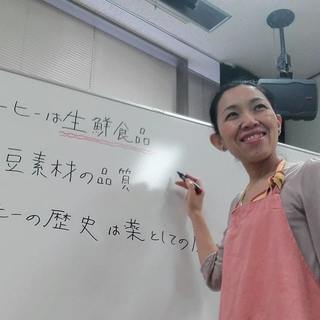 ーヒーは生鮮食品
豆素材の品質
ヒーの歴史は薬としての